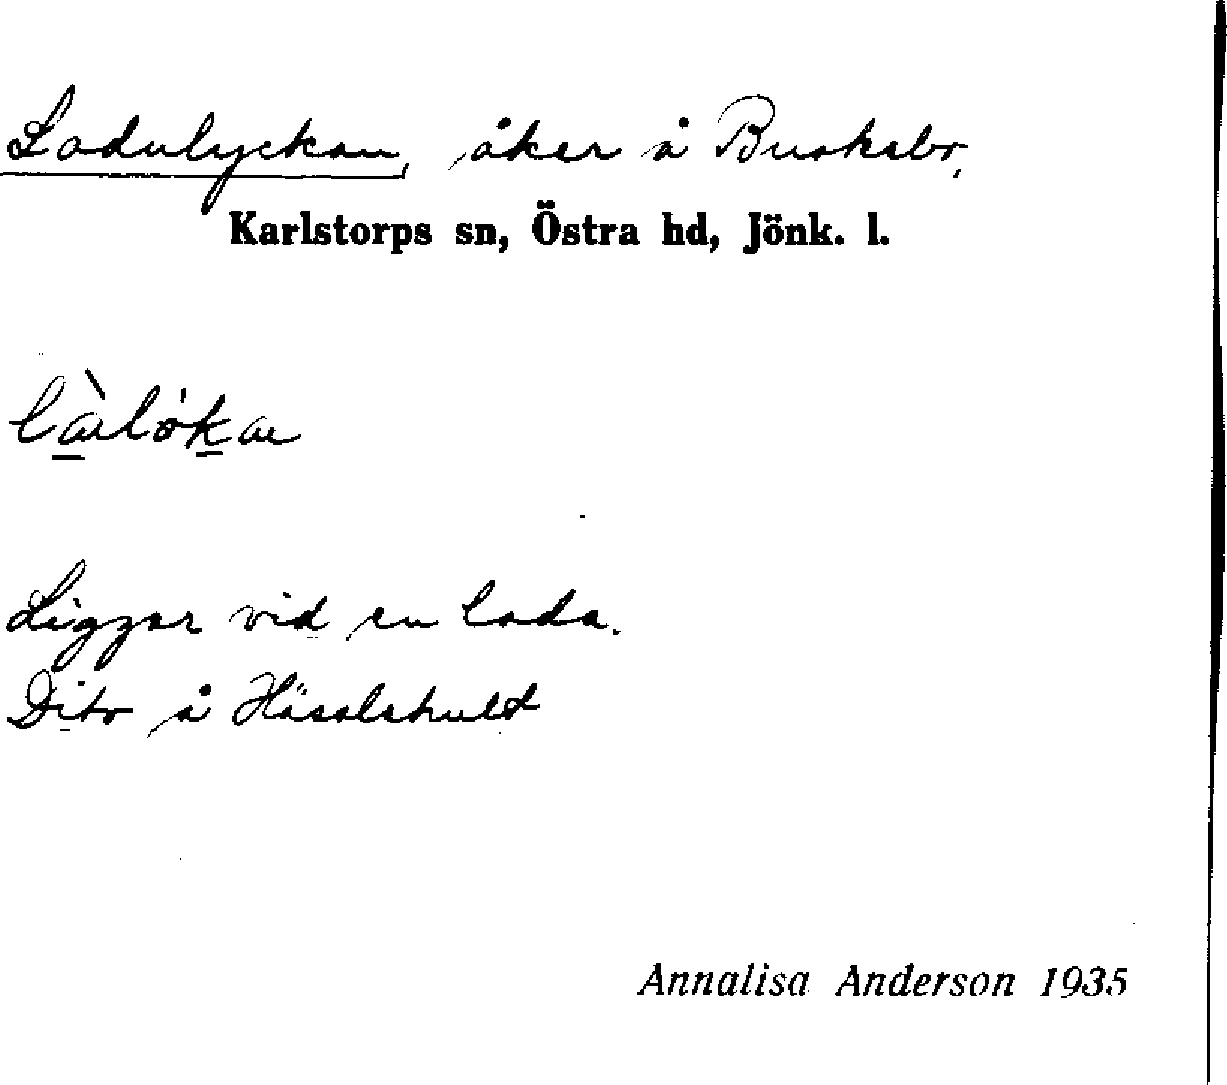 Ladulyckan, åker å Buskabo,
Karlstorps sn, Östra hd, Jönk. l.
Ligger vid en lada.
Dito å Hässlehult
Annalisa Anderson 1935